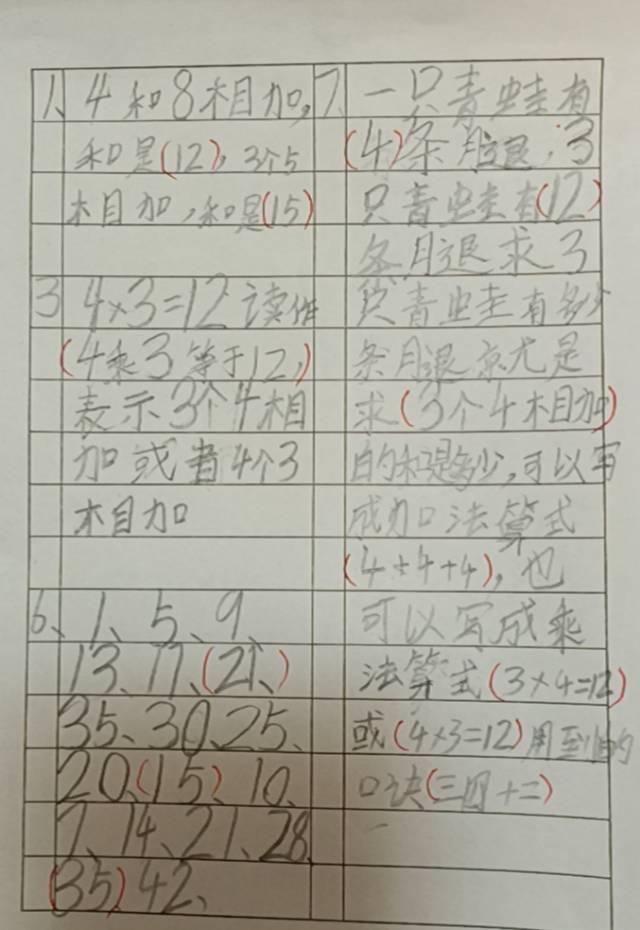 1、4和8相加,
和是(12),3个5
相加,和是(15)
3 4×3=12读作
(4乘3等于12,)
表示3个4相
加或者4个3
相加
6、1、5、9、
13、17、(21、)
35、30、25、
20、(15)、10、
7、14、21、28、
(35)42、
7、一只青蛙有
(4)条腿,3
只青蛙有(12)
条腿求3
只青蛙有多少
条腿就是
求(3个4相加)
的和是多少,可以写
成加法算式
(4+4+4),也
可以写成乘
法算式(3×4=12)
或(4×3=12)用到的
口诀(三四十二)